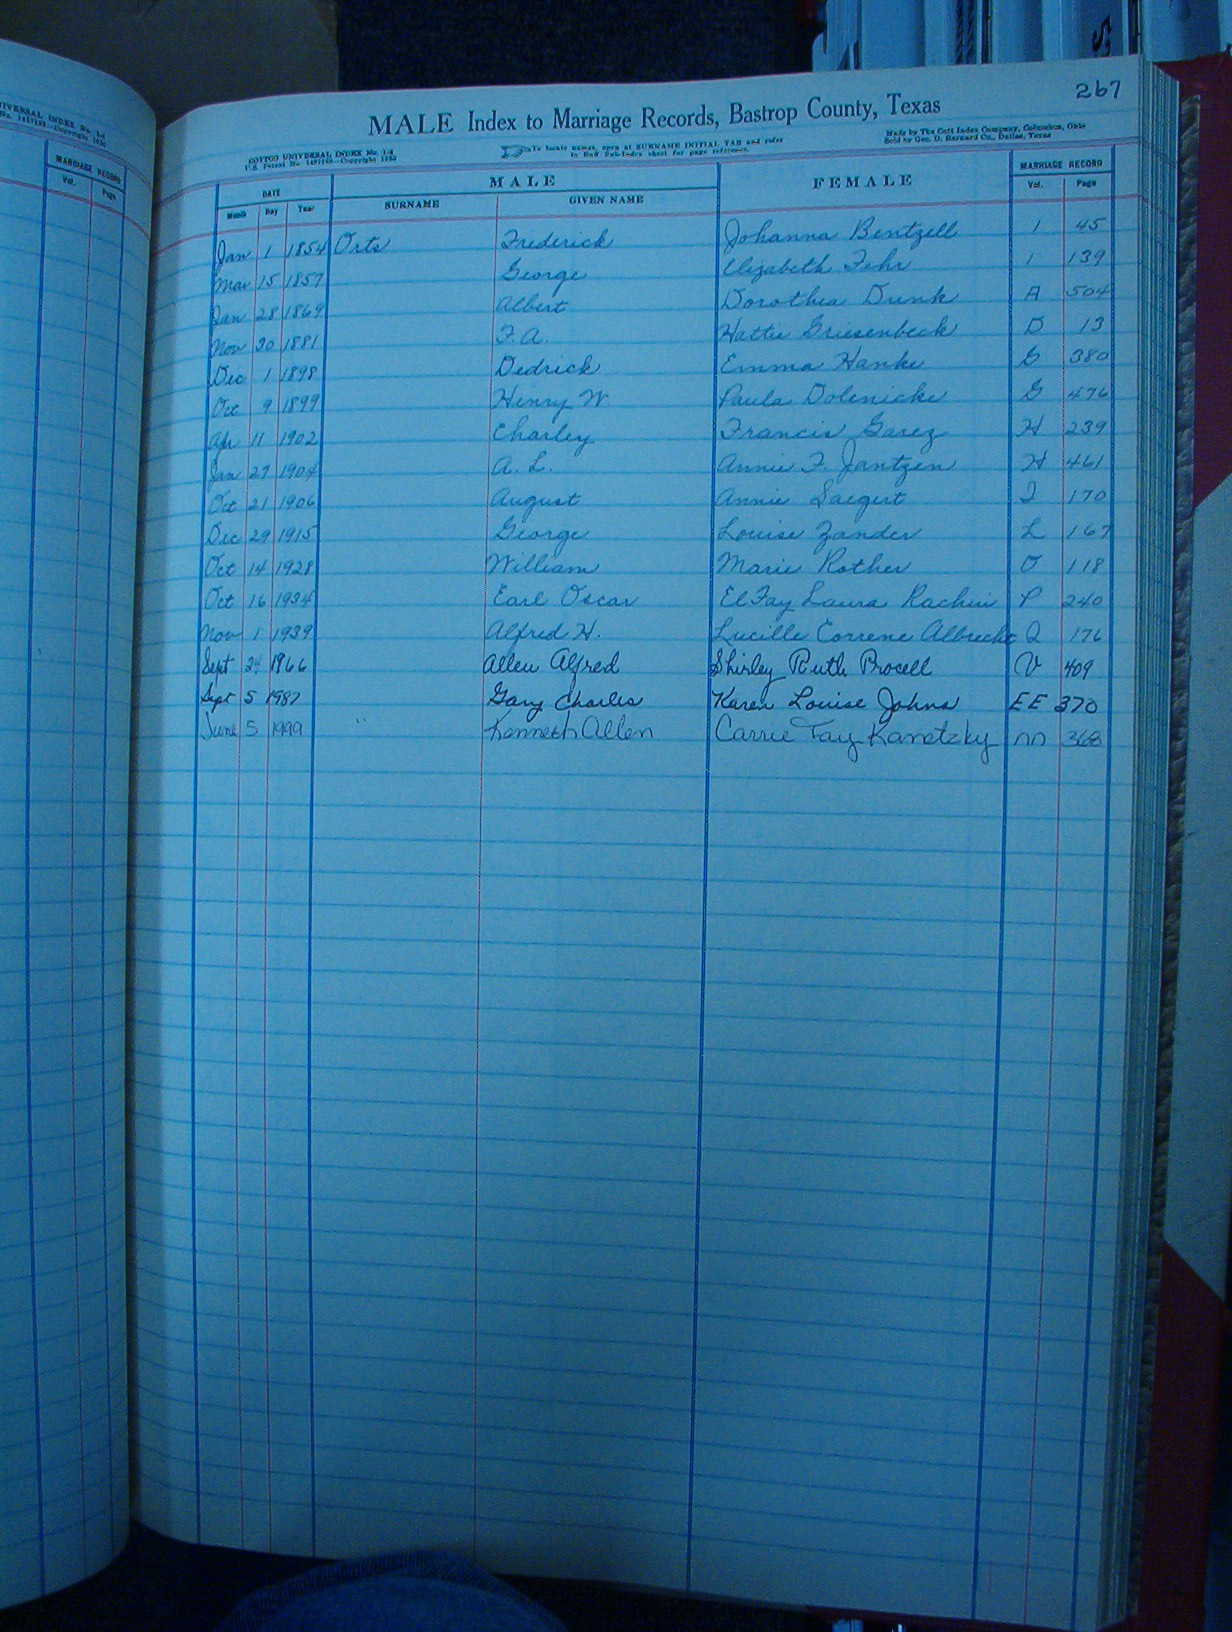 267
MALE Index to Marriage Records, Bastrop County, Texas
COTTCO UNIVERSAL INDEX No. 1-4
To locate names, open at SURNAME INITIAL TAB and refer
Made by The Cott Index Company, Columbus, Ohio
Sold by Geo. D. Barnard Co., Dallas, Texas
DATE MALE FEMALE MARRIAGE RECORD
Month Day Year SURNAME GIVEN NAME Vol. Page
Jan 1 1854 Orts Frederick Johanna Bentzell 1 45
Mar 15 1859 George Elizabeth Fehr 1 139
Jan 28 1869 Albert Dorothea Dunk A 504
Nov 30 1881 F. A. Hattie Griesenbeck D 13
Dec 1 1898 Dedrick Emma Hanke G 380
Oct 9 1899 Henry W. Paula Dolenicke G 476
Apr 11 1902 Charley Francis Garez H 239
Jan 27 1904 A. L. Annie F. Jantzen H 461
Oct 21 1906 August Annie Saegert I 170
Dec 29 1915 George Louise Zander L 167
Oct 14 1928 William Marie Rother O 118
Oct 16 1934 Earl Oscar El Fay Laura Rachui P 240
Nov 1 1939 Alfred H. Lucille Correne Albrecht Q 176
Sept 24 1966 Allen Alfred Shirley Ruth Procell V 409
Sept 5 1987 Gary Charles Karen Louise Johns EE 370
June 5 1999 " Kenneth Allen Carrie Fay Kanetzky nn 368
MARRIAGE RECORD
Vol. Page